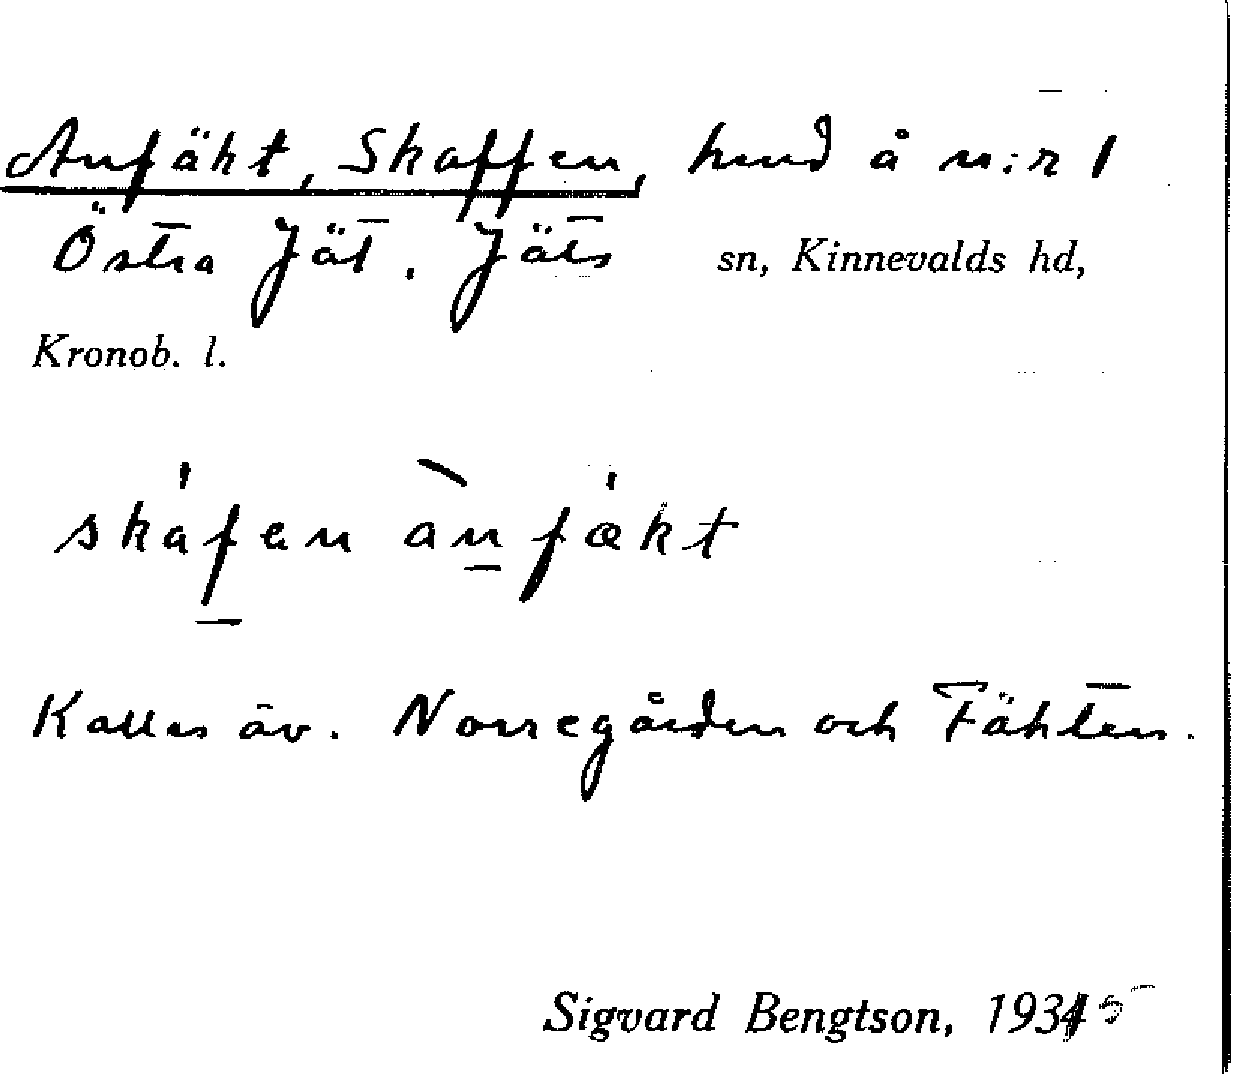 Anfäkt, Skaffen, hmd å n:r 1
Östra Jät. Jäts sn, Kinnevalds hd,
Kronob. l.
skáfen ànfækt
Kallas äv. Norregården och Fäkten.
Sigvard Bengtson, 1935